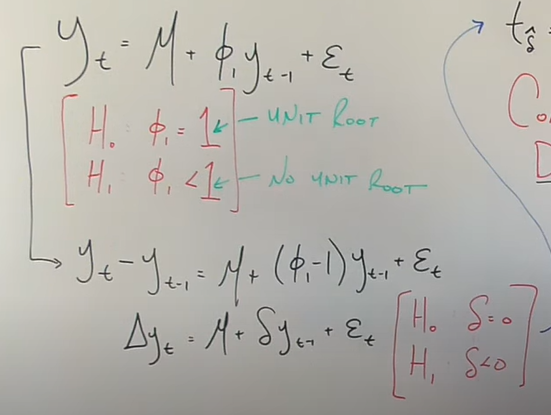 yₜ = M + φ₁yₜ₋₁ + εₜ
H₀ : φ₁ = 1 ← UNIT ROOT
H₁ : φ₁ < 1 ← NO UNIT ROOT
yₜ - yₜ₋₁ = M + (φ₁-1)yₜ₋₁ + εₜ
Δyₜ = M + δyₜ₋₁ + εₜ
H₀ δ=0
H₁ δ<0
t_δ̂ =